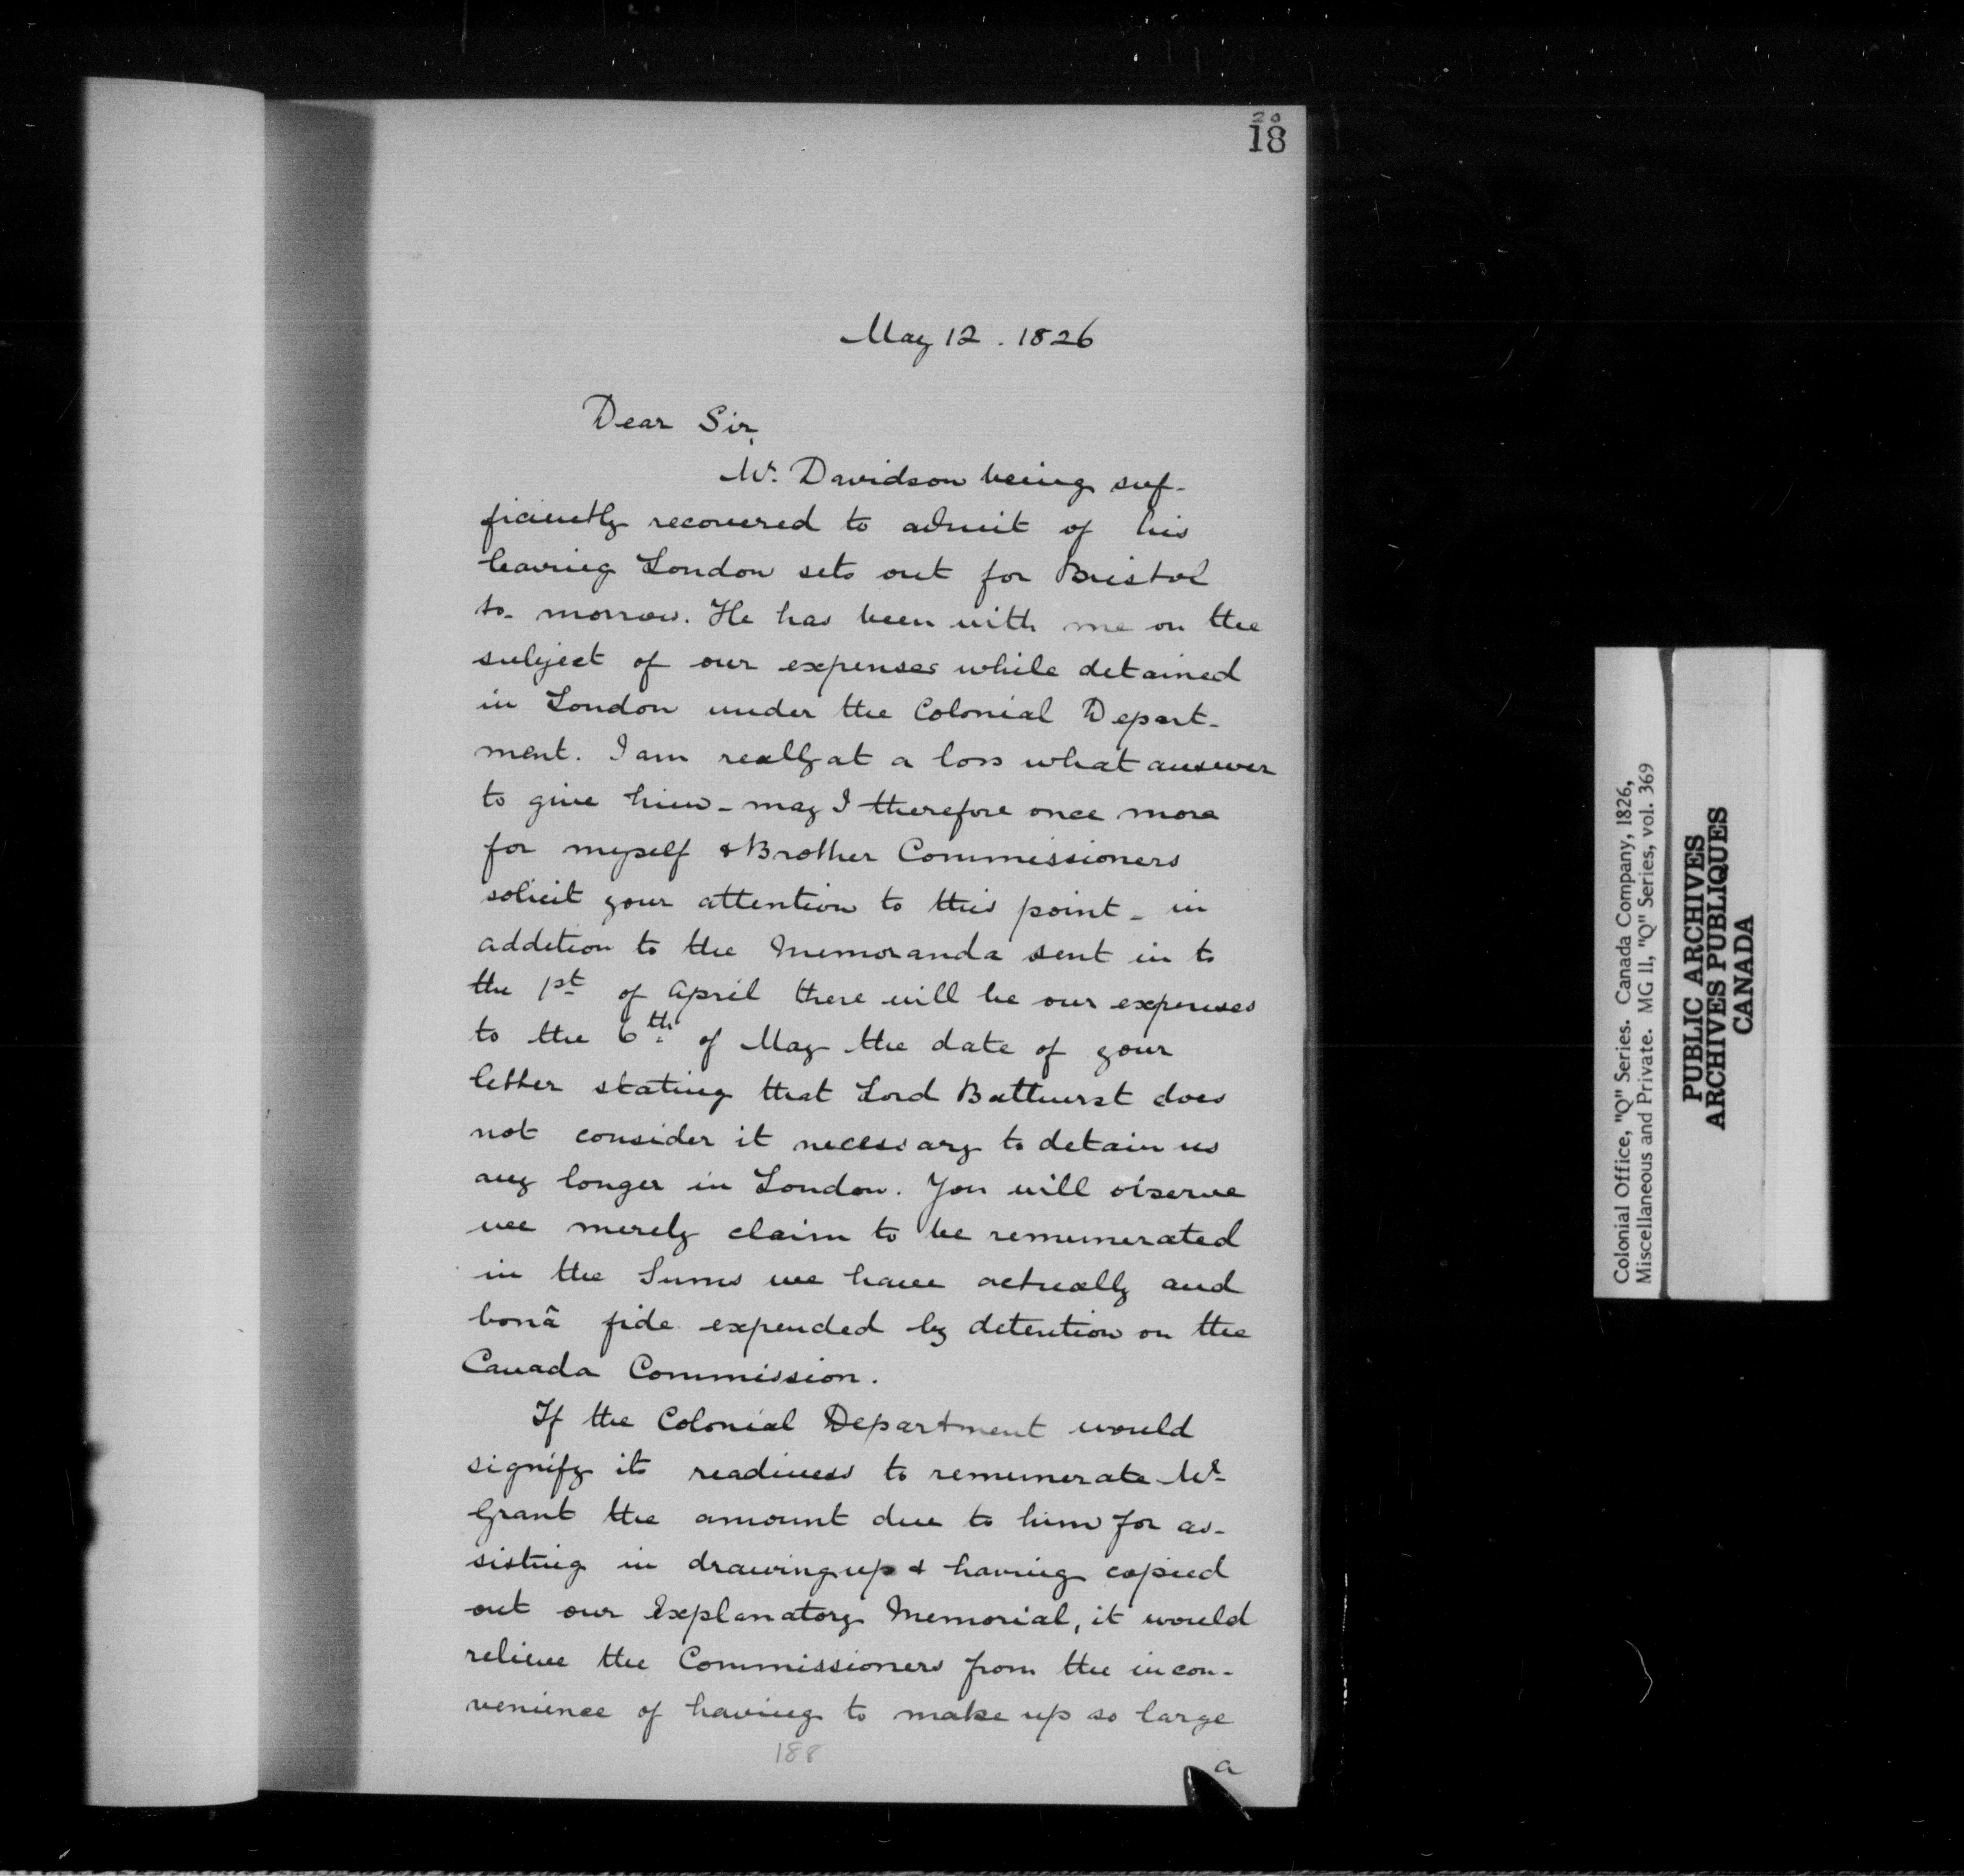 20
18
May 12. 1826
Dear Sir,
Mr. Davidson being suf-
ficiently recovered to admit of his
leaving London sets out for Bristol
to-morrow. He has been with me on the
subject of our expenses while detained
in London under the Colonial Depart-
ment. I am really at a loss what answer
to give him - may I therefore once more
for myself & Brother Commissioners
solicit your attention to this point - in
addition to the Memoranda sent in to
the 1st of April there will be our expenses
to the 6th of May the date of your
letter stating that Lord Bathurst does
not consider it necessary to detain us
any longer in London. You will observe
we merely claim to be remunerated
in the Sums we have actually and
bonâ fide expended by detention on the
Canada Commission.
If the Colonial Department would
signify its readiness to remunerate Mr
Grant the amount due to him for as-
sisting in drawing up & having copied
out our Explanatory Memorial, it would
relieve the Commissioners from the incon-
venience of having to make up so large
188
a
Colonial Office, "Q" Series. Canada Company, 1826,
Miscellaneous and Private. MG 11, "Q" Series, vol. 369
PUBLIC ARCHIVES
ARCHIVES PUBLIQUES
CANADA